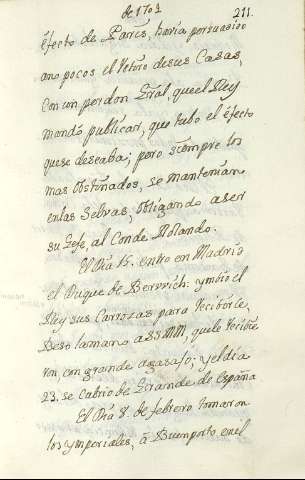 de 1703
211.
efecto de Paris, havia persuasido
ano pocos el retiro desus Casas,
Con un perdon Gral, queel Rey
mandò publicar, que tubo el efecto
quese deseaba; pero siempre los
mas obstinados, se mantenian
enlas Selvas, obligando aser
su Gefe, al Conde Rolando.
El Dia 15. entro en Madrid
el Duque de Berwich: ymbio el
Rey sus Carrozas para recibirle,
Beso lamano a SSMM, quele recibie
ron, con grande agasajo; yel dia
23. se cubrio de Grande de España
El Dia 8. de febrero tomaron
los ymperiales, à Buenporto, enel